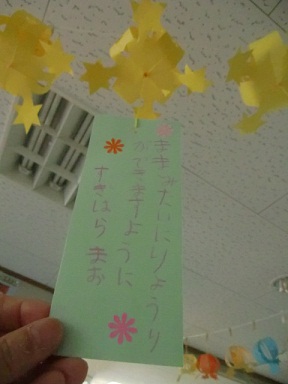 ままみたいにりょうり
ができますように
すぎはら まお